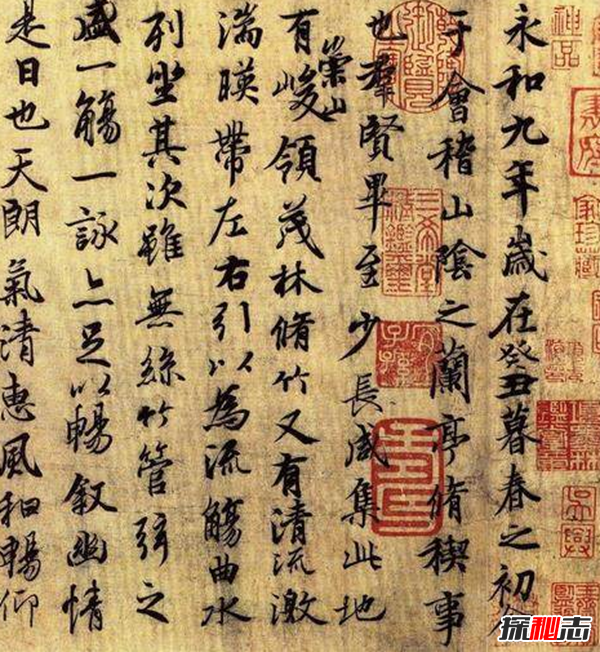 永和九年歲在癸丑暮春之初會
于會稽山陰之蘭亭脩稧事
也羣賢畢至少長咸集此地
有崇山峻領茂林脩竹又有清流激
湍暎帶左右引以為流觴曲水
列坐其次雖無絲竹管弦之
盛一觴一詠亦足以暢敘幽情
是日也天朗氣清惠風和暢仰
神品
三希堂精鑑璽
宜子孫
吳興
探秘志